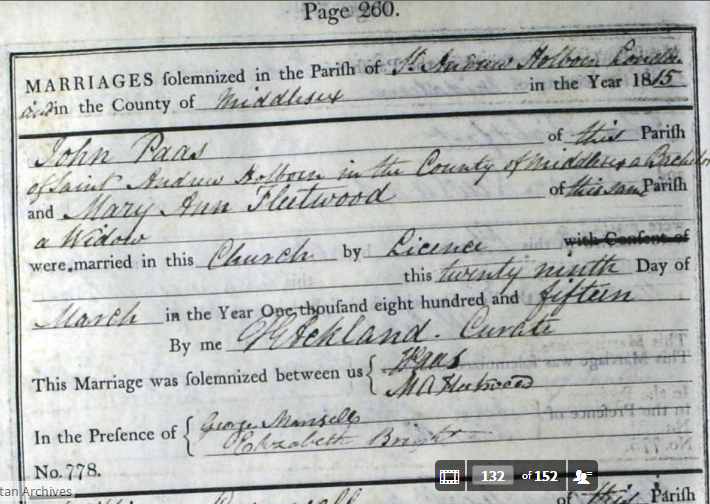 Page 260.
MARRIAGES solemnized in the Parish of St. Andrew Holborn London
and in the County of Middlesex in the Year 1815
John Paas of this Parish
of Saint Andrew Holborn in the County of Middlesex a Bachelor
and Mary Ann Fleetwood of this same Parish
a Widow
were married in this Church by Licence with Consent of
this twenty ninth Day of
March in the Year One thousand eight hundred and fifteen
By me Curate
This Marriage was solemnized between us { Paas
M A Fleetwood
In the Presence of { George Mansell
Elizabeth Bright
No. 778.
132 of 152
tan Archives
of this Parish